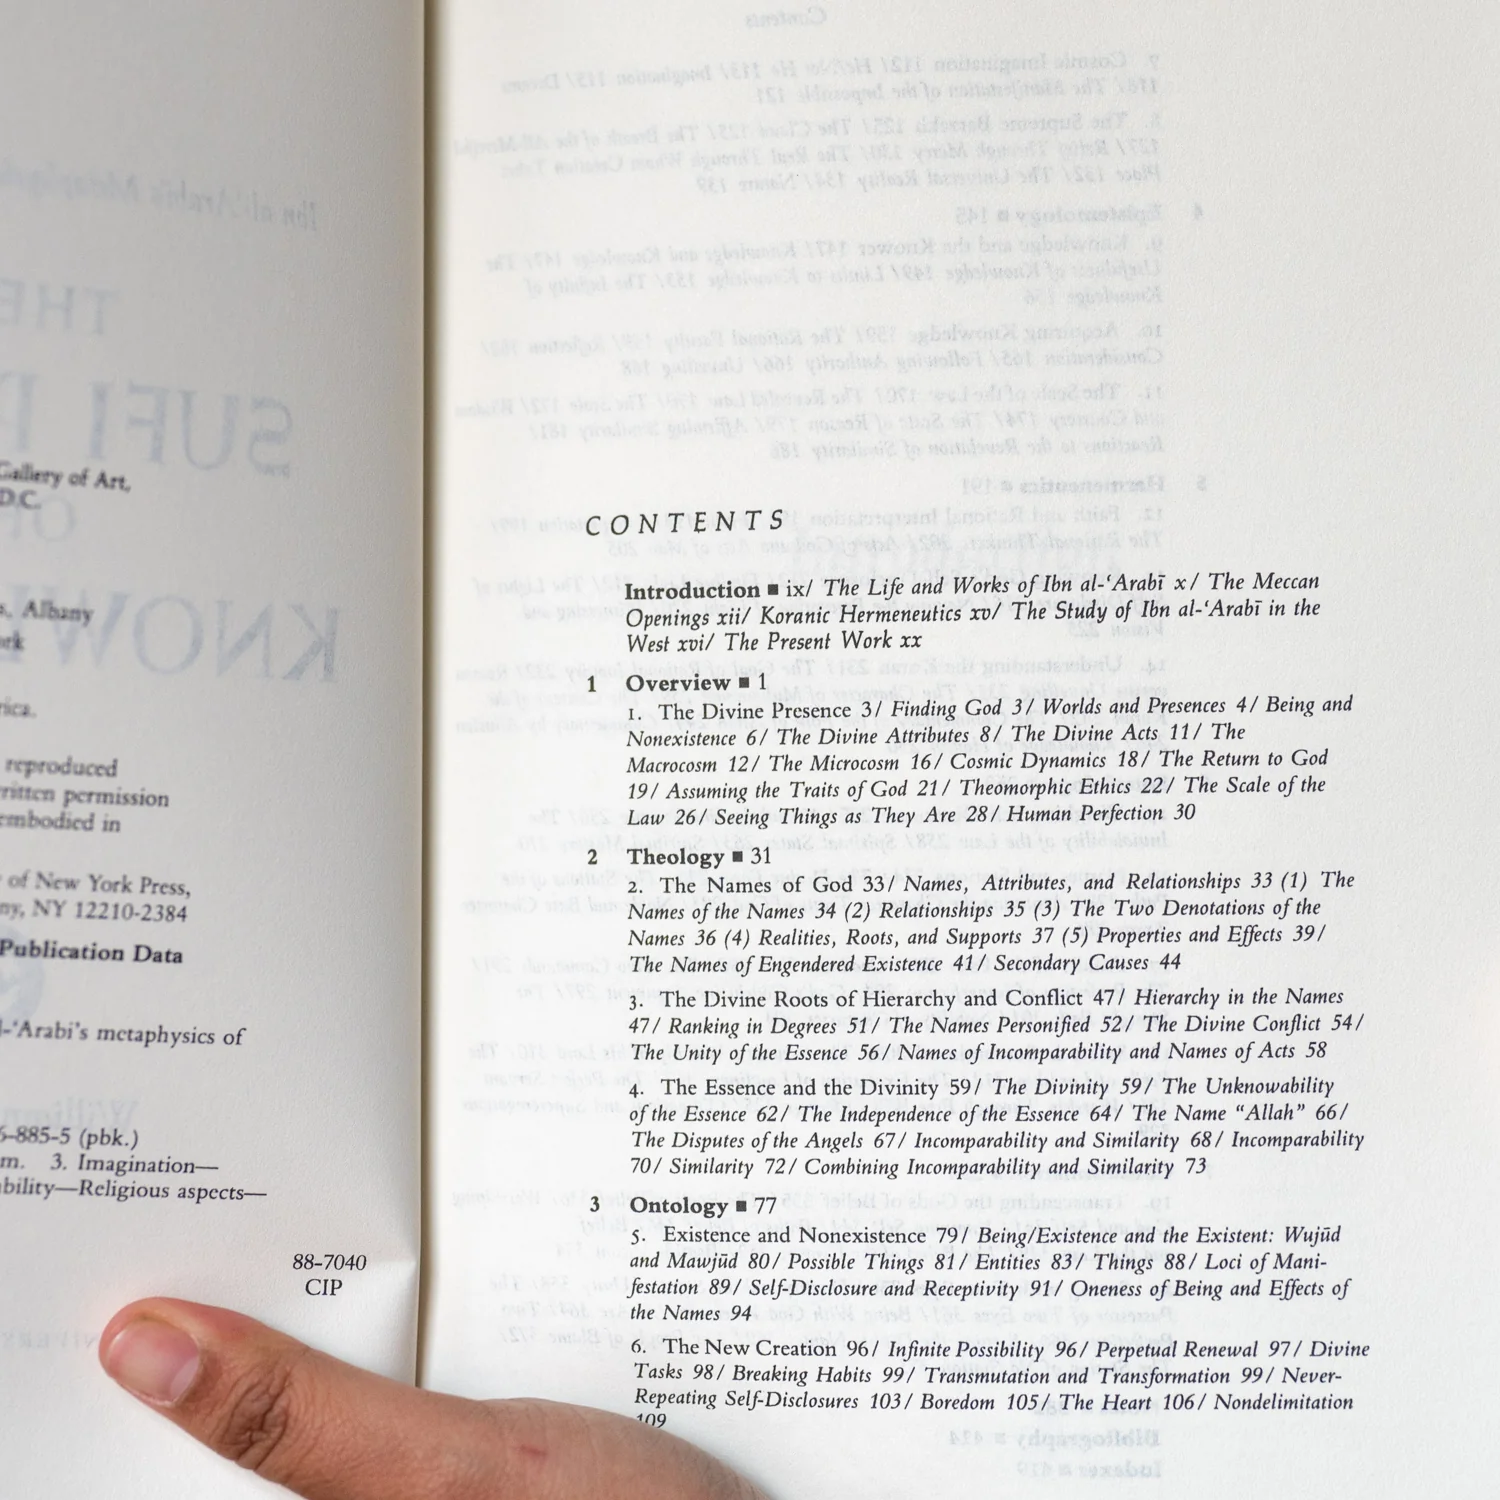 Gallery of Art,
D.C.
s, Albany
rica.
reproduced
written permission
embodied in
of New York Press,
ny, NY 12210-2384
Publication Data
l-‘Arabi’s metaphysics of
6-885-5 (pbk.)
m. 3. Imagination—
bility—Religious aspects—
88-7040
CIP
CONTENTS
Introduction ■ ix/ The Life and Works of Ibn al-‘Arabī x/ The Meccan
Openings xii/ Koranic Hermeneutics xv/ The Study of Ibn al-‘Arabī in the
West xvi/ The Present Work xx
1 Overview ■ 1
1. The Divine Presence 3/ Finding God 3/ Worlds and Presences 4/ Being and
Nonexistence 6/ The Divine Attributes 8/ The Divine Acts 11/ The
Macrocosm 12/ The Microcosm 16/ Cosmic Dynamics 18/ The Return to God
19/ Assuming the Traits of God 21/ Theomorphic Ethics 22/ The Scale of the
Law 26/ Seeing Things as They Are 28/ Human Perfection 30
2 Theology ■ 31
2. The Names of God 33/ Names, Attributes, and Relationships 33 (1) The
Names of the Names 34 (2) Relationships 35 (3) The Two Denotations of the
Names 36 (4) Realities, Roots, and Supports 37 (5) Properties and Effects 39/
The Names of Engendered Existence 41/ Secondary Causes 44
3. The Divine Roots of Hierarchy and Conflict 47/ Hierarchy in the Names
47/ Ranking in Degrees 51/ The Names Personified 52/ The Divine Conflict 54/
The Unity of the Essence 56/ Names of Incomparability and Names of Acts 58
4. The Essence and the Divinity 59/ The Divinity 59/ The Unknowability
of the Essence 62/ The Independence of the Essence 64/ The Name “Allah” 66/
The Disputes of the Angels 67/ Incomparability and Similarity 68/ Incomparability
70/ Similarity 72/ Combining Incomparability and Similarity 73
3 Ontology ■ 77
5. Existence and Nonexistence 79/ Being/Existence and the Existent: Wujūd
and Mawjūd 80/ Possible Things 81/ Entities 83/ Things 88/ Loci of Mani-
festation 89/ Self-Disclosure and Receptivity 91/ Oneness of Being and Effects of
the Names 94
6. The New Creation 96/ Infinite Possibility 96/ Perpetual Renewal 97/ Divine
Tasks 98/ Breaking Habits 99/ Transmutation and Transformation 99/ Never-
Repeating Self-Disclosures 103/ Boredom 105/ The Heart 106/ Nondelimitation
109